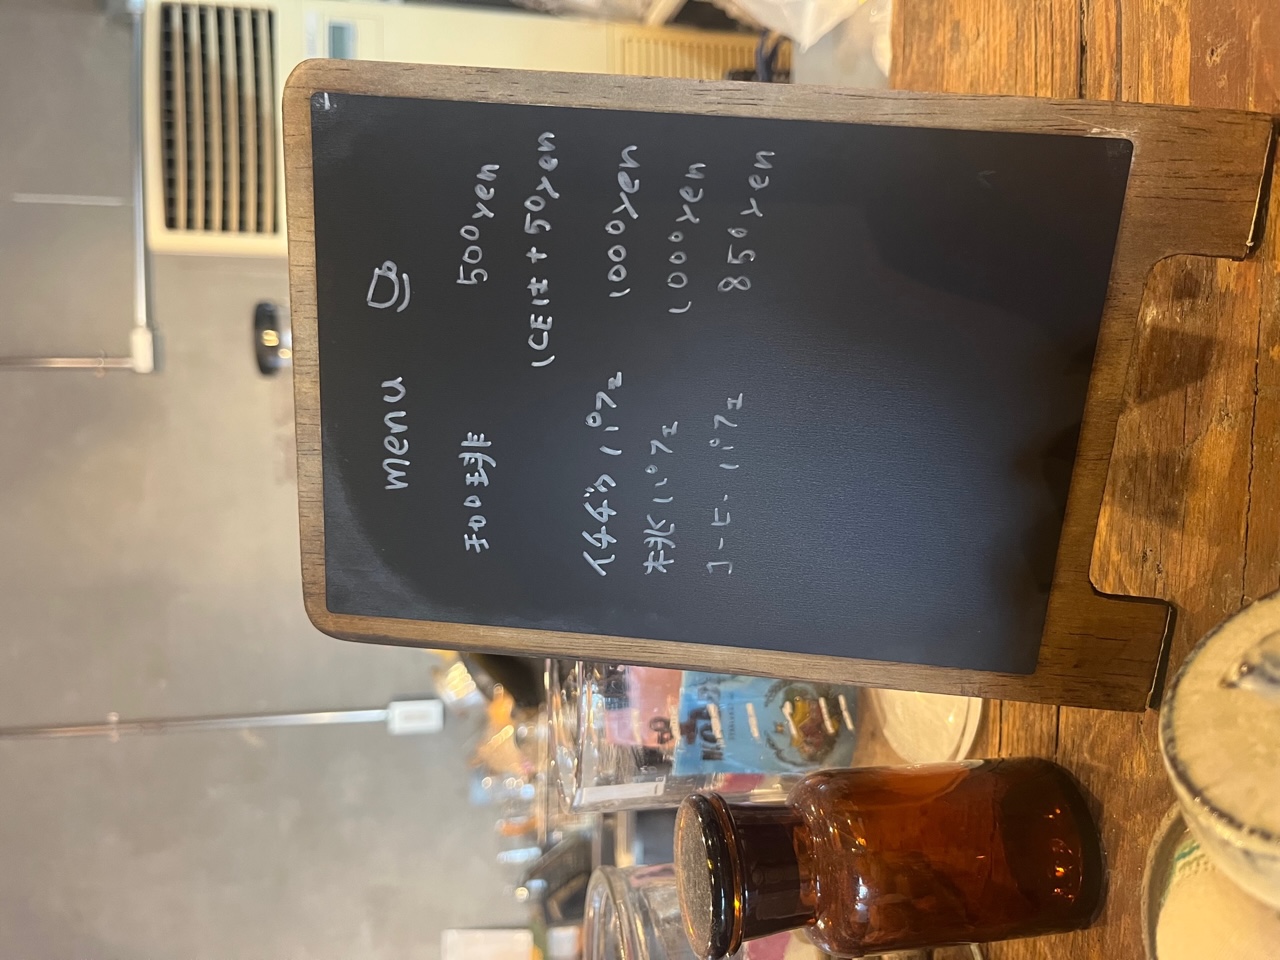 menu
珈琲 500yen
ICEは+50yen
イチヂクパフェ 1000yen
桃パフェ 1000yen
コーヒーパフェ 850yen